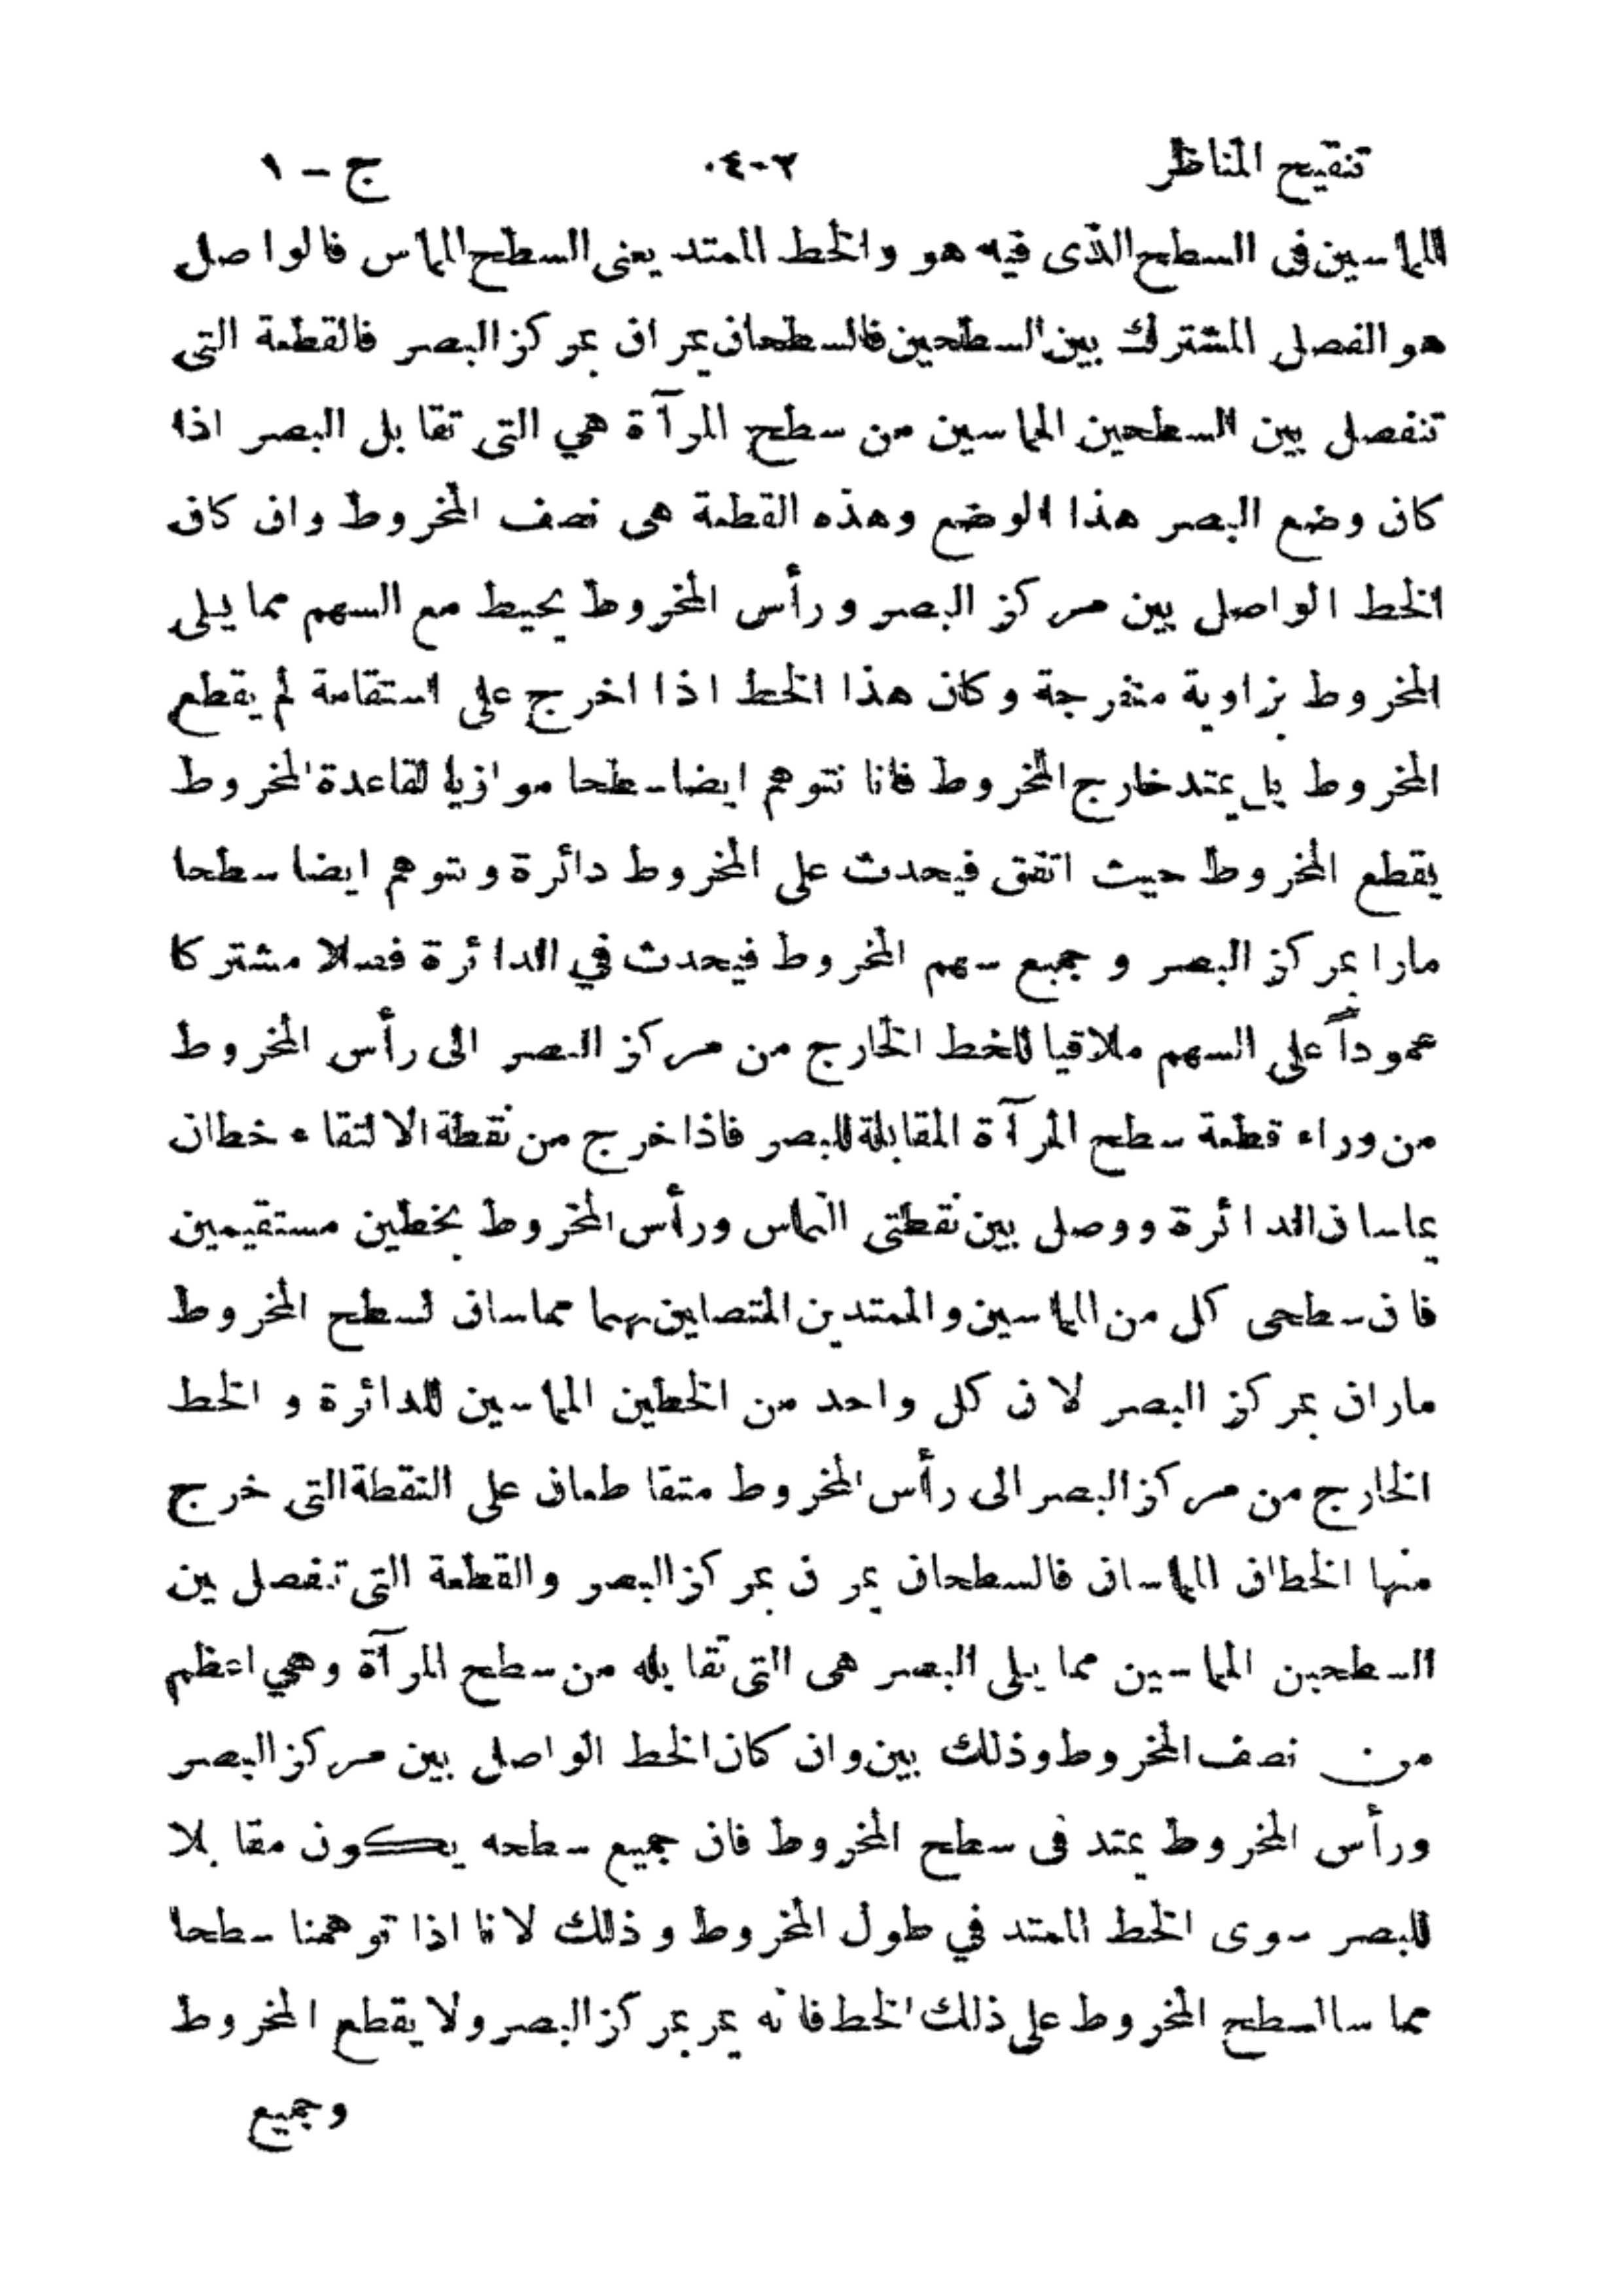 تنقيح المناظر ٤٠٢ ج – ١
المماسين فى السطح الذى فيه هو والخط الممتد يعنى السطح المماس فالواصل
هو الفصل المشترك بين السطحين فالسطحان يمران بمركز البصر فالقطعة التى
تنفصل بين السطحين المماسين من سطح المرآة هي التى تقابل البصر اذا
كان وضع البصر هذا الوضع وهذه القطعة هى نصف المخروط وان كان
الخط الواصل بين مركز البصر ورأس المخروط يحيط مع السهم مما يلى
المخروط بزاوية منفرجة وكان هذا الخط اذا اخرج على استقامة لم يقطع
المخروط بل يمتد خارج المخروط فانا نتوهم ايضا سطحا موازيا لقاعدة المخروط
يقطع المخروط حيث اتفق فيحدث على المخروط دائرة ونتوهم ايضا سطحا
مارا بمركز البصر و جميع سهم المخروط فيحدث في الدائرة فصلا مشتركا
عموداً على السهم ملاقيا للخط الخارج من مركز البصر الى رأس المخروط
من وراء قطعة سطح المرآة المقابلة للبصر فاذا خرج من نقطة الالتقاء خطان
يماسان الدائرة ووصل بين نقطتى التماس ورأس المخروط بخطين مستقيمين
فان سطحى كل من المماسين والممتدين المتصلين بهما مماسان لسطح المخروط
ماران بمركز البصر لان كل واحد من الخطين المماسين للدائرة و الخط
الخارج من مركز البصر الى رأس المخروط متقاطعان على النقطة التى خرج
منها الخطان المماسان فالسطحان يمران بمركز البصر والقطعة التى تنفصل بين
السطحين المماسين مما يلى البصر هى التى تقابله من سطح المرآة وهي اعظم
من نصف المخروط وذلك بين وان كان الخط الواصل بين مركز البصر
ورأس المخروط يمتد فى سطح المخروط فان جميع سطحه يكون مقابلا
للبصر سوى الخط الممتد في طول المخروط وذلك لانا اذا توهمنا سطحا
مماسا لسطح المخروط على ذلك الخط فانه يمر بمركز البصر ولا يقطع المخروط
وجميع